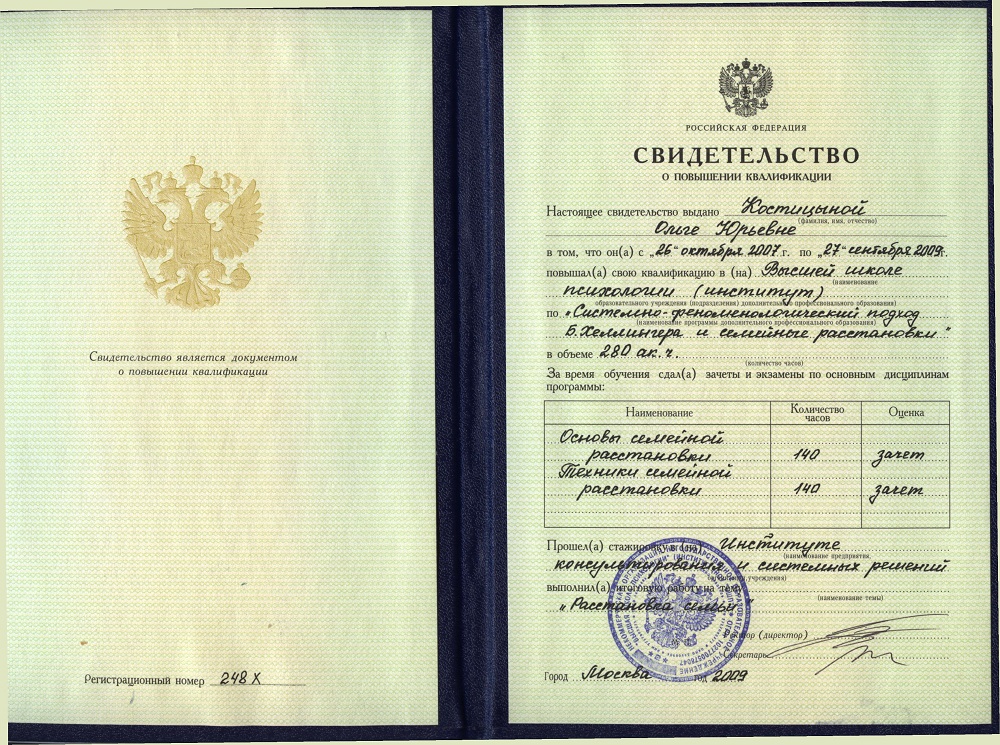 Свидетельство является документом
о повышении квалификации
Регистрационный номер 248 X
РОССИЙСКАЯ ФЕДЕРАЦИЯ
СВИДЕТЕЛЬСТВО
О ПОВЫШЕНИИ КВАЛИФИКАЦИИ
Настоящее свидетельство выдано Костицыной
(фамилия, имя, отчество)
Ольге Юрьевне
в том, что он(а) с „26“ октября 2007 г. по „27“ сентября 2009г.
повышал(а) свою квалификацию в (на) Высшей школе
(наименование
психологии (институт)
образовательного учреждения (подразделения) дополнительного профессионального образования)
по „Системно-феноменологический подход
(наименование программы дополнительного профессионального образования)
Б. Хеллингера и семейные расстановки"
в объеме 280 ак. ч.
(количество часов)
За время обучения сдал(а) зачеты и экзамены по основным дисциплинам
программы:
Наименование Количество часов Оценка
Основы семейной
расстановки 140 зачет
Техники семейной
расстановки 140 зачет
Прошел(а) стажировку в (на) Институте
(наименование предприятия,
консультирования и системных решений
учреждения)
выполнил(а) итоговую работу на тему
(наименование темы)
„Расстановка семьи"
Ректор (директор)
Секретарь
Город Москва год 2009